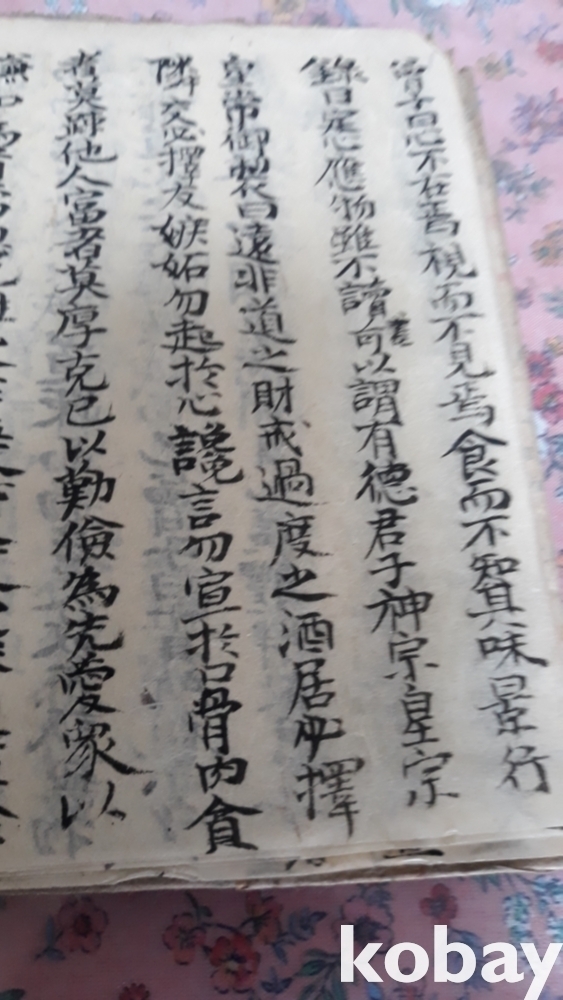 曾子曰心不在焉視而不見焉食而不知其味景行
錄曰定心應物雖不讀書可以謂有德君子神宗皇宗
皇帝御製曰遠非道之財戒過度之酒居必擇
隣交必擇友嫉妬勿起於心讒言勿宣於口骨肉貪
者莫疎他人富者莫厚克己以勤儉為先愛衆以
kobay